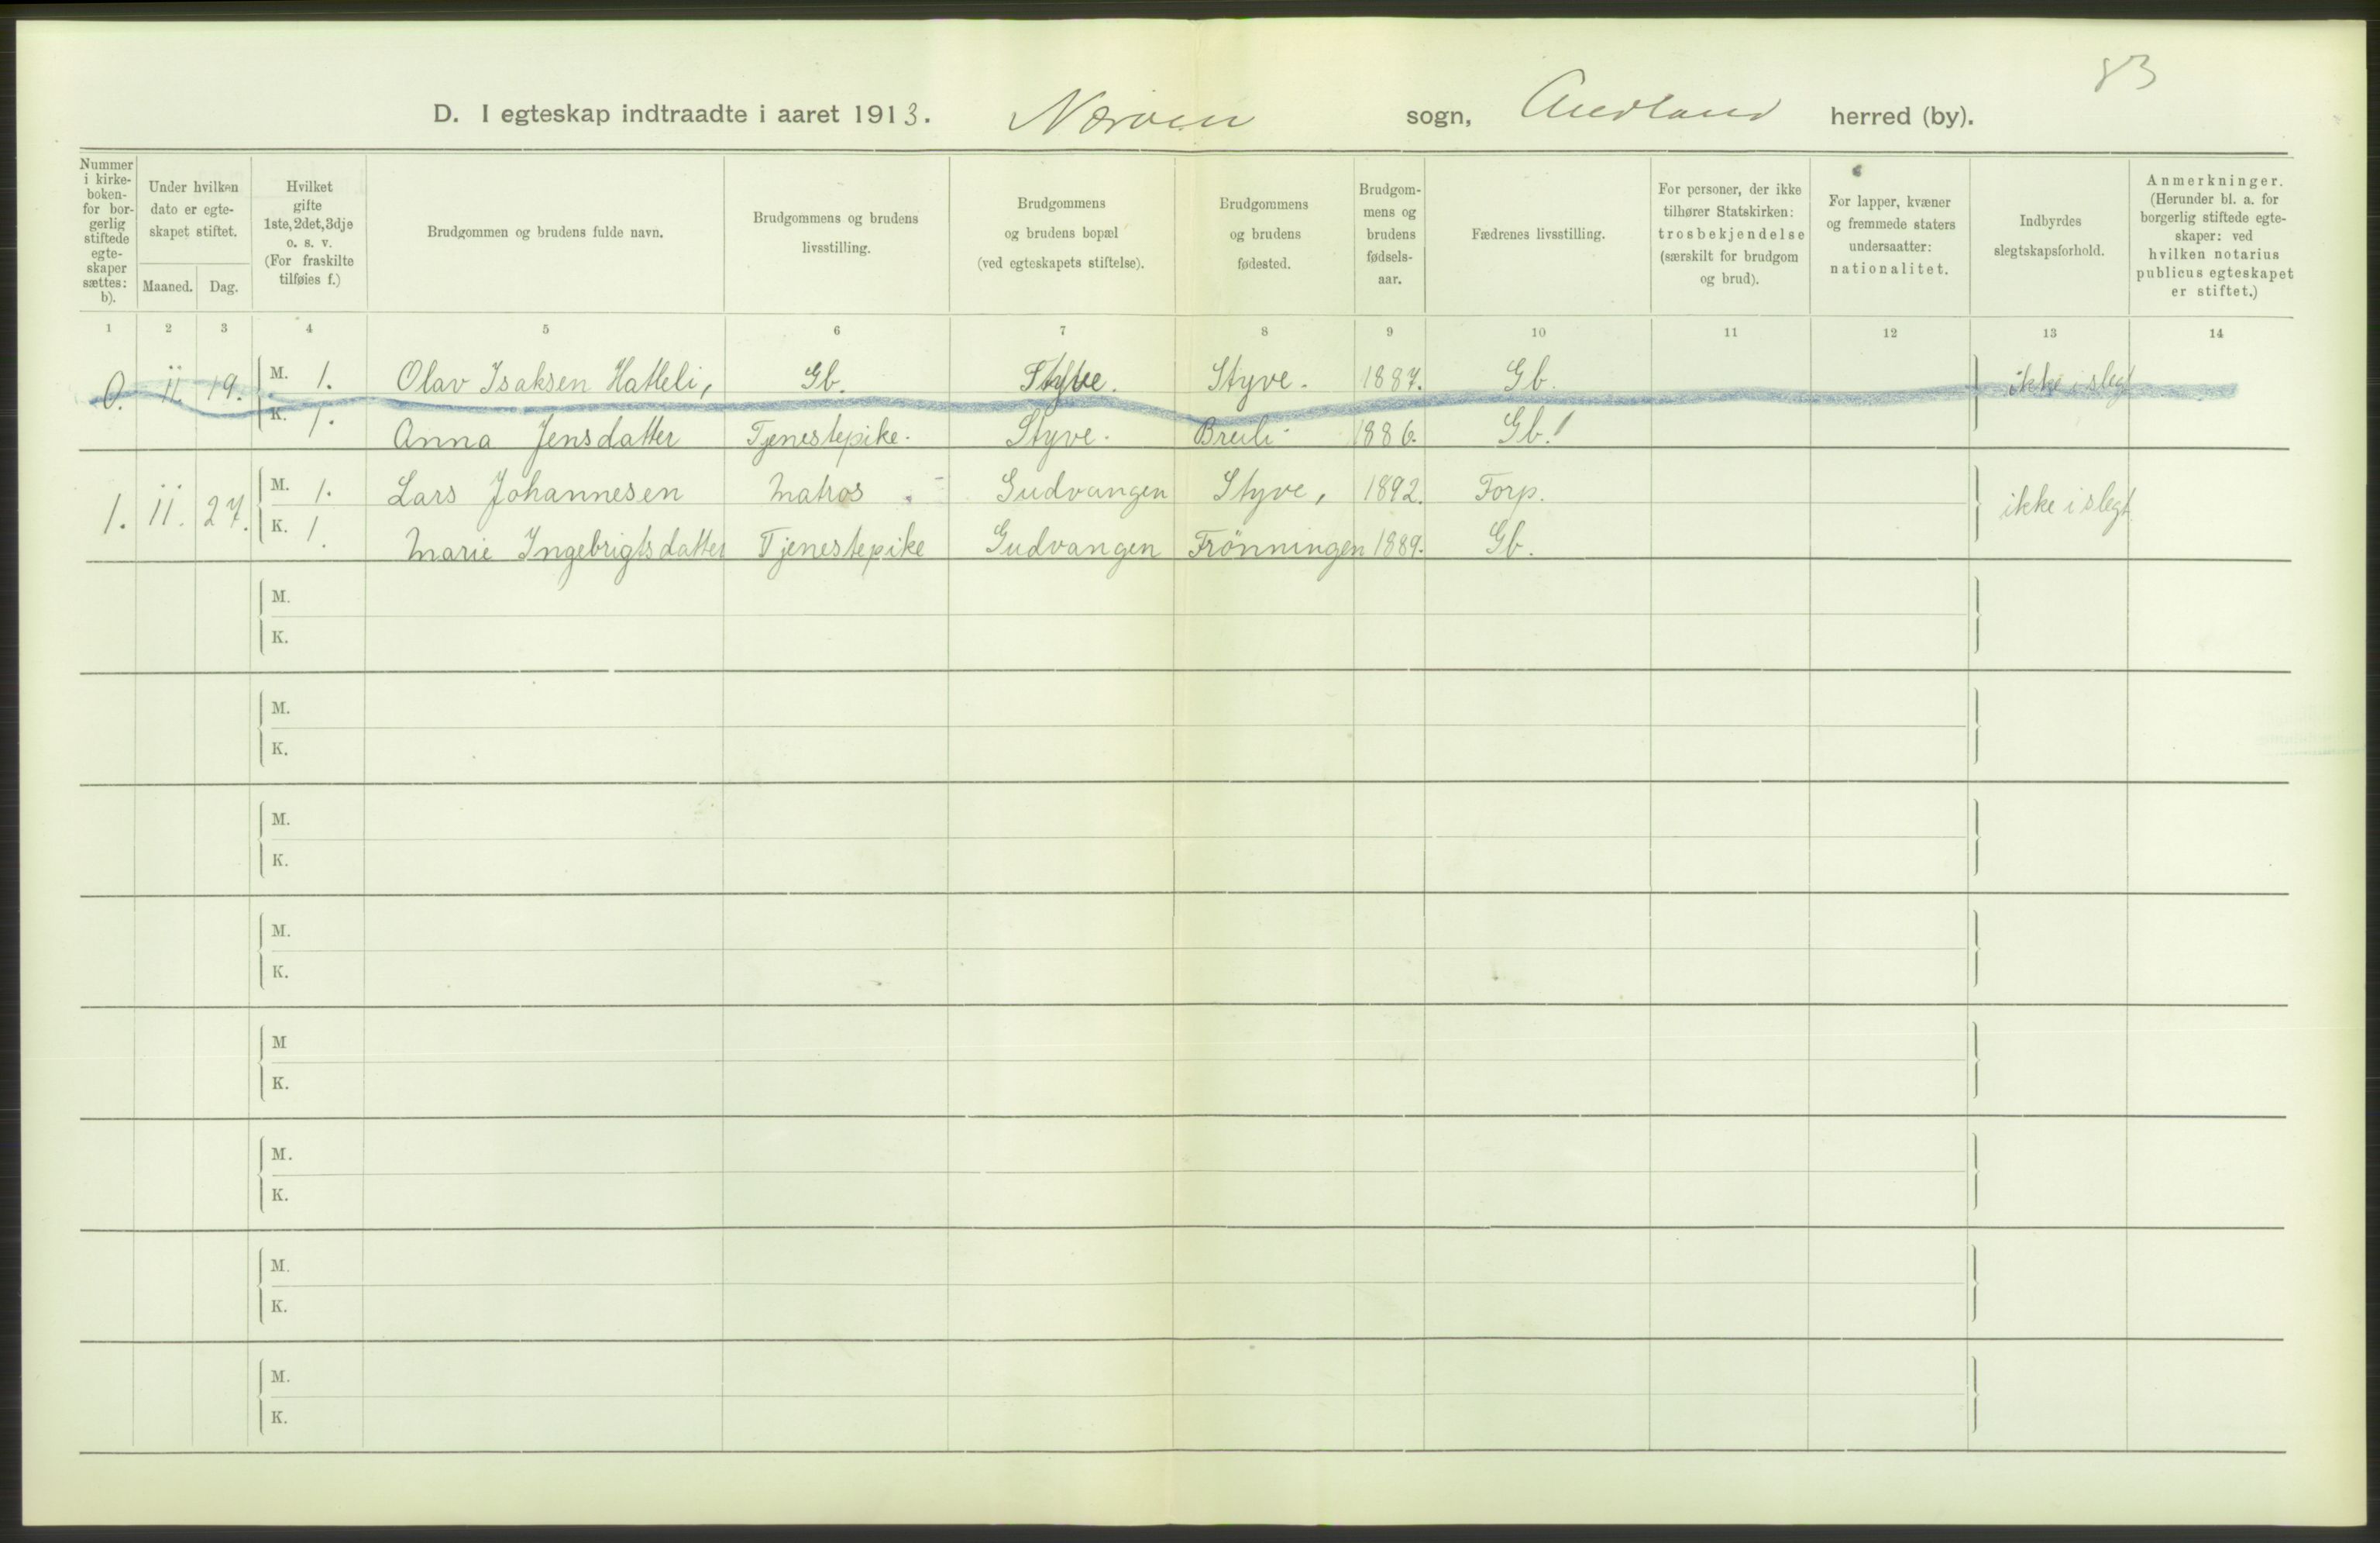 83
D. I egteskap indtraadte i aaret 1913. Nærøen sogn, Aurland herred (by).
Nummer i kirkeboken- for borgerlig stiftede egteskaper sættes: b).
Under hvilken dato er egteskapet stiftet.
Maaned. Dag.
Hvilket gifte 1ste, 2det, 3dje o. s. v. (For fraskilte tilføies f.)
Brudgommen og brudens fulde navn.
Brudgommens og brudens livsstilling.
Brudgommens og brudens bopæl (ved egteskapets stiftelse).
Brudgommens og brudens fødested.
Brudgommens og brudens fødselsaar.
Fædrenes livsstilling.
For personer, der ikke tilhører Statskirken: trosbekjendelse (særskilt for brudgom og brud).
For lapper, kvæner og fremmede staters undersaatter: nationalitet.
Indbyrdes slegtskapsforhold.
Anmerkninger. (Herunder bl. a. for borgerlig stiftede egteskaper: ved hvilken notarius publicus egteskapet er stiftet.)
1 2 3 4 5 6 7 8 9 10 11 12 13 14
0. 11. 19. M. 1. Olav Isaksen Hatleli, Gb. Styve. Styve. 1887. Gb. ikke i slegt
K. 1. Anna Jensdatter Tjenestepike. Styve. Breili 1886. Gb.
1. 11. 27. M. 1. Lars Johannesen Matros Gudvangen Styve, 1892. Forp. ikke i slegt
K. 1. Marie Ingebrigtsdatter Tjenestepike Gudvangen Frönningen 1889. Gb.
M.
K.
M.
K.
M.
K.
M.
K.
M
K.
M.
K.
M.
K.
M.
K.